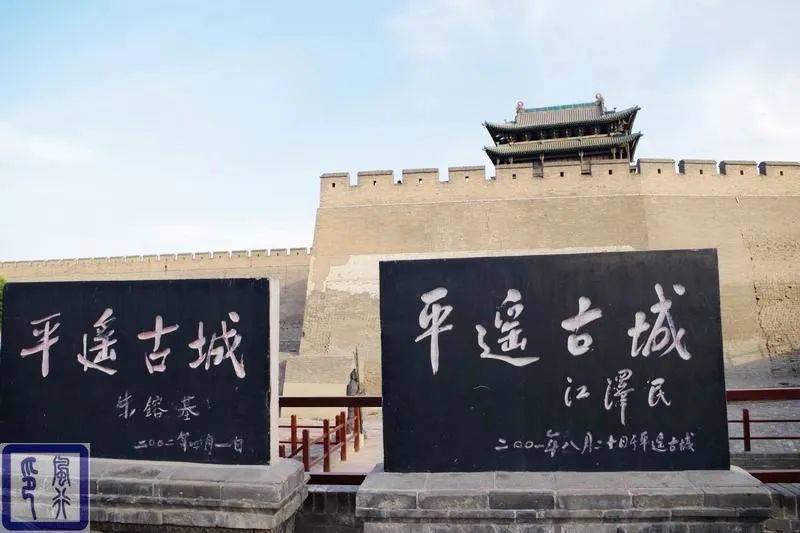 平遥古城
朱鎔基
二〇〇二年四月一日
平遥古城
江澤民
二〇〇一年八月二十日于平遥古城